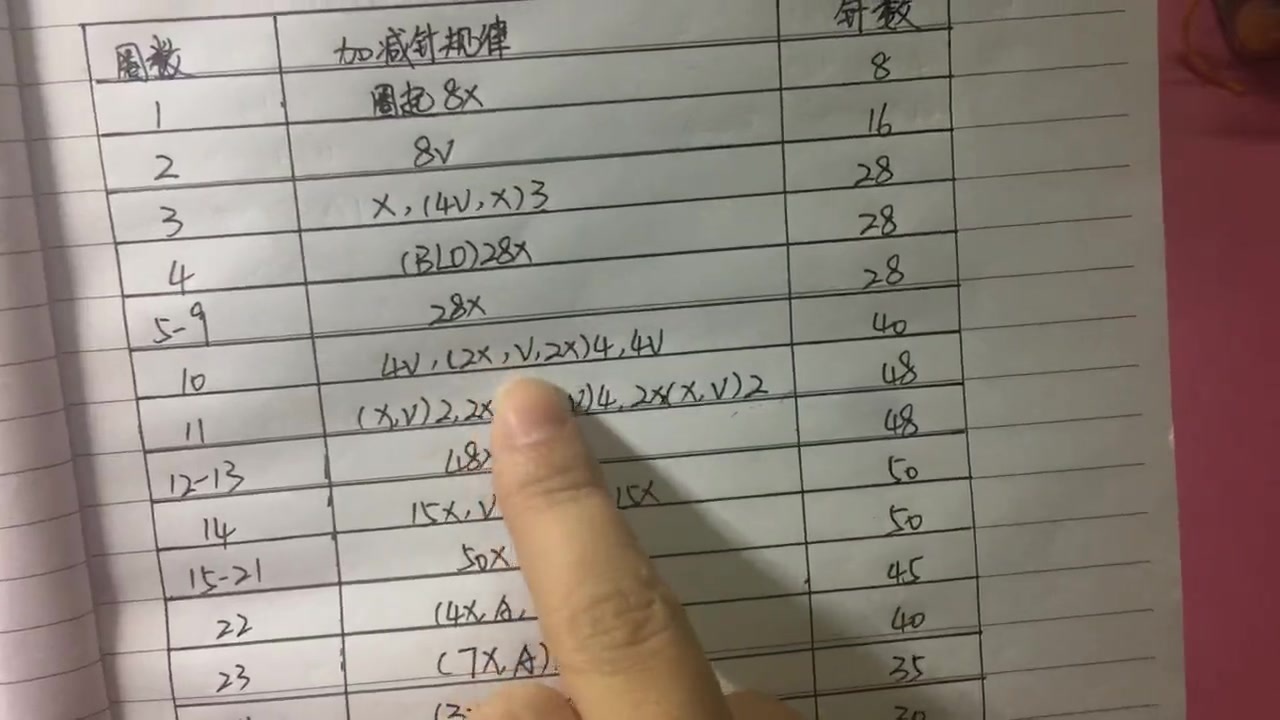 圈数 加减针规律 针数
1 圈起 8X 8
2 8V 16
3 X,(4V,X)3 28
4 (BLO)28X 28
5-9 28X 28
10 4V,(2X,V,2X)4,4V 40
11 (X,V)2,2X V)4,2X(X,V)2 48
12-13 48X 48
14 15X,V 15X 50
15-21 50X 50
22 (4X,A, 45
23 (7X,A) 40
35